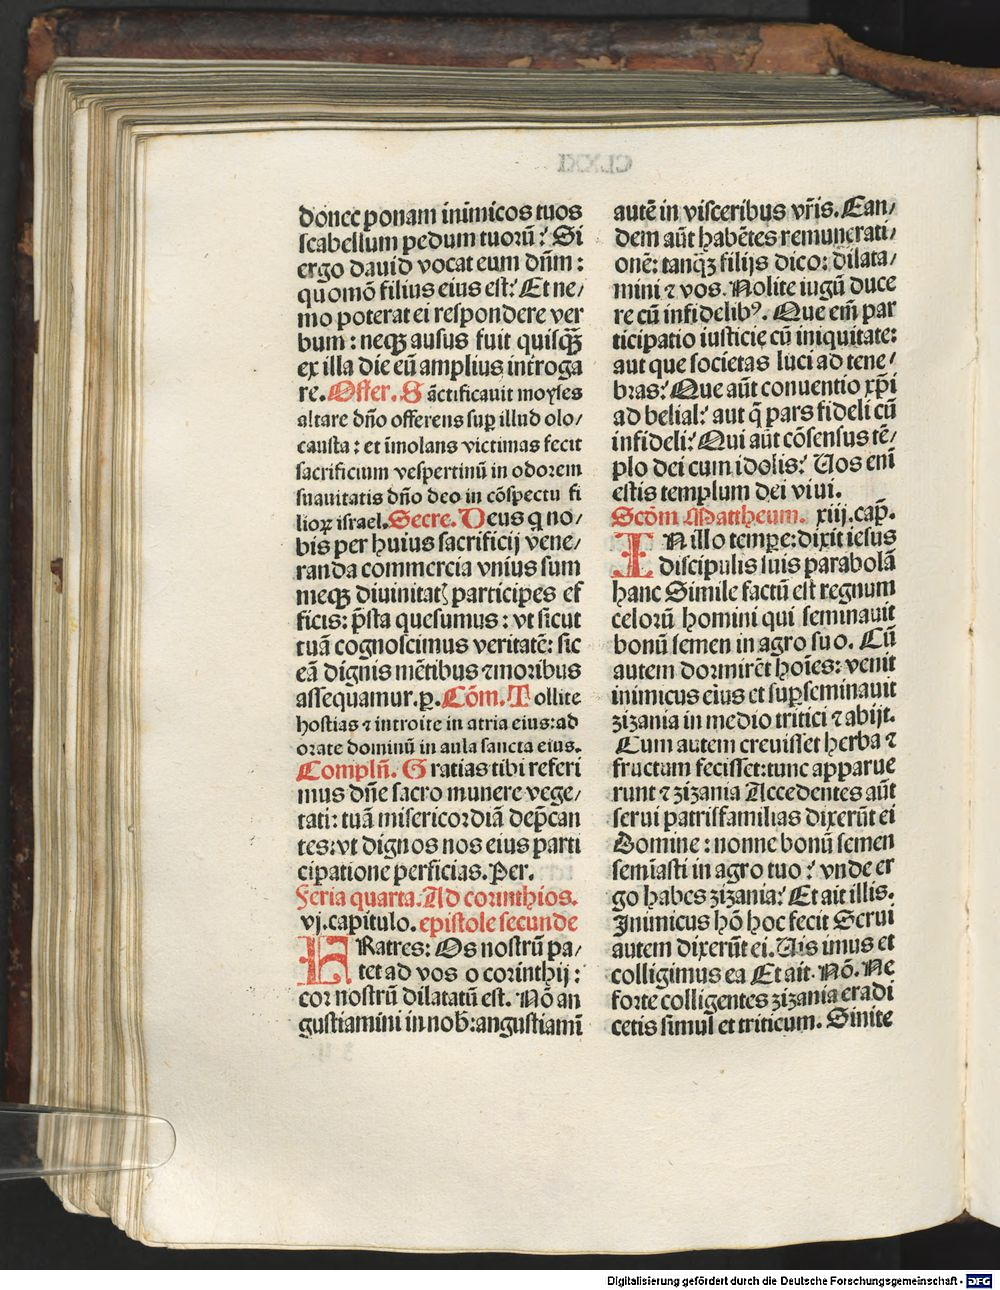 donec ponam inimicos tuos
scabellum pedum tuorū? Si
ergo dauid vocat eum dn̄m:
quomō filius eius est? Et ne-
mo poterat ei respondere ver
bum: neqꝫ ausus fuit quisqꝫ̄
ex illa die eū amplius introga
re. Offer. Sāctificauit moyses
altare dn̄o offerens suꝑ illud olo/
causta: et īmolans victimas fecit
sacrificium vespertinū in odorem
suauitatis dn̄o deo in cōspectu fi
lioꝝ israel. Secre. Deus q no/
bis per huius sacrificij vene/
randa commercia vnius sum
meqꝫ diuinitatꝭ participes ef
ficis: p̄sta quesumus: vt sicut
tuā cognoscimus veritatē: sic
eā dignis mētibus ⁊ moribus
assequamur. ꝑ. Cōm. Tollite
hostias ⁊ introite in atria eius: ad
orate dominū in aula sancta eius.
Compln̄. Gratias tibi referi
mus dn̄e sacro munere vege/
tati: tuā misericordiā dep̄can
tes: vt dignos nos eius parti
cipatione perficias. Per.
Feria quarta. Ad corinthios.
vj. capitulo. epistole secunde
FRatres: Os nostrū pa/
tet ad vos o corinthij:
cor nostrū dilatatū est. Nō an
gustiamini in nob̄: angustiamī
autē in visceribus vr̄is. Ean/
dem aūt habētes remunerati/
onē: tanqꝫ̄ filijs dico: dilata/
mini ⁊ vos. Nolite iugū duce
re cū infidelibꝰ. Que em̄ par
ticipatio iusticie cū iniquitate:
aut que societas luci ad tene/
bras? Que aūt conuentio xp̄i
ad belial? aut q̄ pars fideli cū
infideli? Qui aūt cōsensus tē/
plo dei cum idolis? Uos enī
estis templum dei viui.
Scd̄m Mattheum. xiij. cap̄.
IN illo tempe: dixit iesus
discipulis suis parabolā
hanc Simile factū est regnum
celorū homini qui seminauit
bonū semen in agro suo. Cū
autem dormirēt hoīes: venit
inimicus eius et suꝑseminauit
zizania in medio tritici ⁊ abijt.
Cum autem creuisset herba ⁊
fructum fecisset: tunc apparue
runt ⁊ zizania Accedentes aūt
serui patrisfamilias dixerūt ei
Domine: nonne bonū semen
semīasti in agro tuo? vnde er
go habes zizania? Et ait illis.
Inimicus hō hoc fecit Serui
autem dixerūt ei. Uis imus et
colligimus ea Et ait. Nō. Ne
forte colligentes zizania eradi
cetis simul et triticum. Sinite
Digitalisierung gefördert durch die Deutsche Forschungsgemeinschaft - DFG